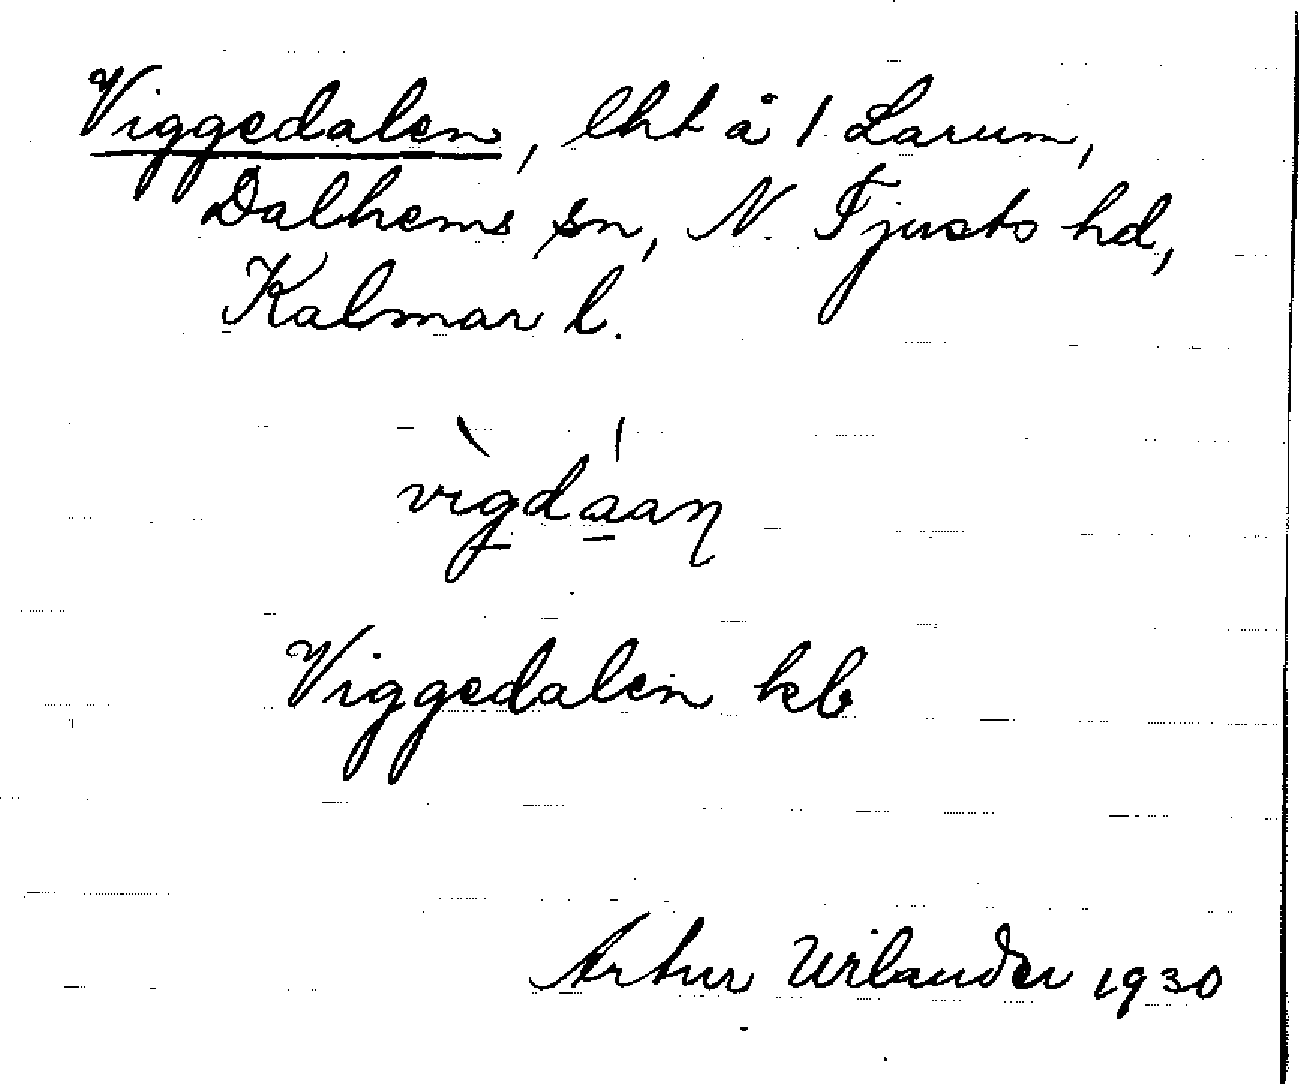 Viggedalen, lht å 1 Larum,
Dalhems sn, N. Tjusts hd,
Kalmar l.
vìgdáaη
Viggedalen kb
Artur Wilander 1930